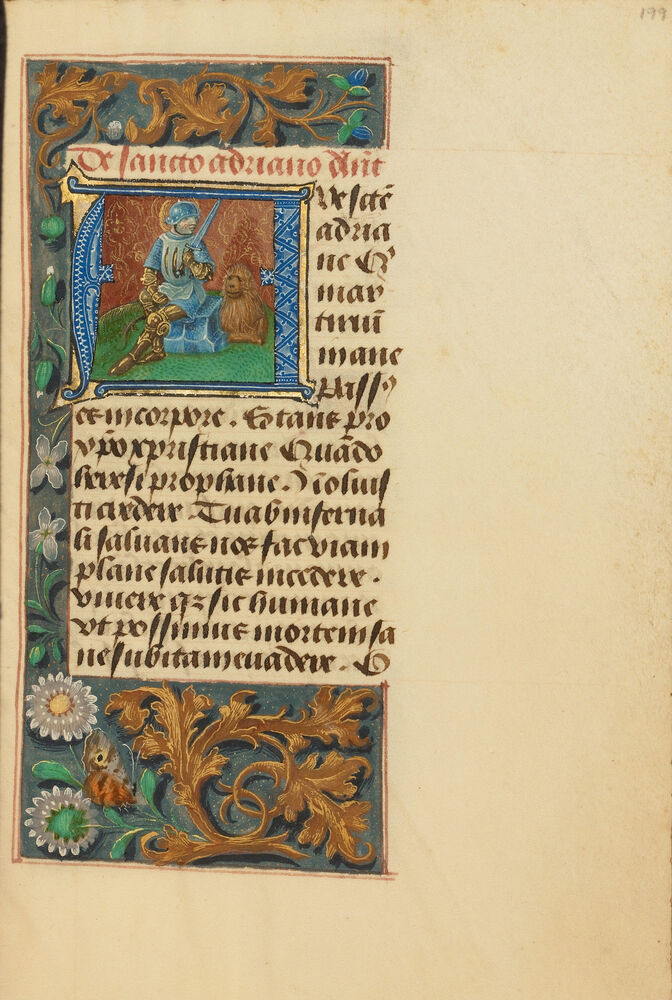 199
De sancto adriano Ant
Ave scte
adria
ne q
mar
tiriu
mane
Pass9
es in corpore . Et tans pro
xpo xpristiane Quado
heresi prophane . Noluis
ti credere . Tu ab inferna
li saluans nos fac viam
plane salutis incedere .
viuere qz sic humane
vt possimus mortem sa
ne subitam euadere .